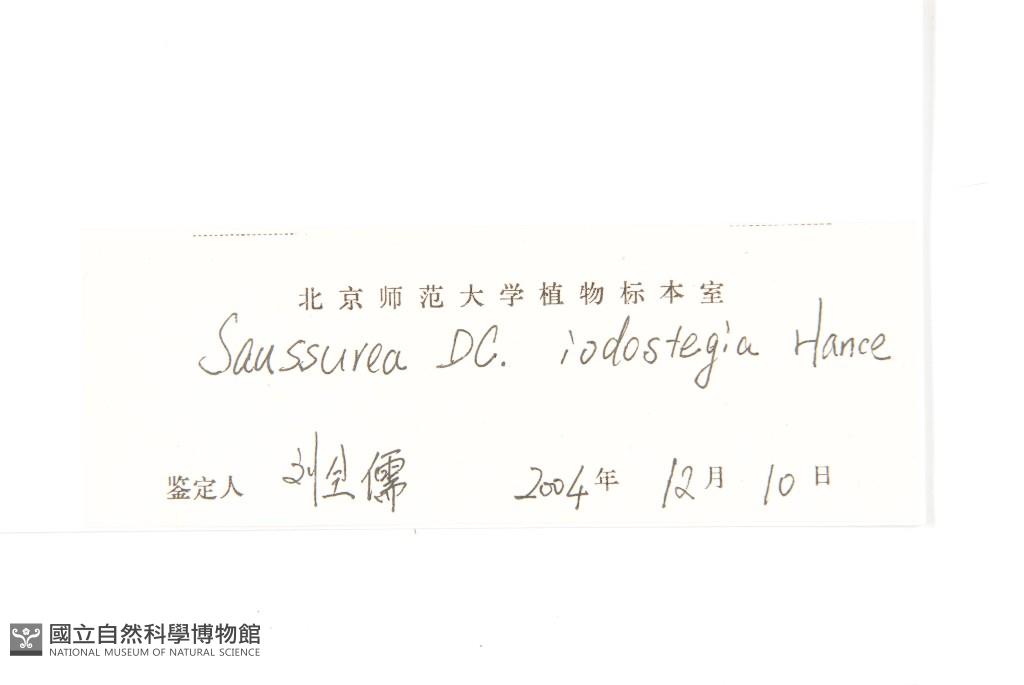 北京师范大学植物标本室
Saussurea DC. iodostegia Hance
鉴定人 刘全儒 2004年 12月 10日
國立自然科學博物館
NATIONAL MUSEUM OF NATURAL SCIENCE